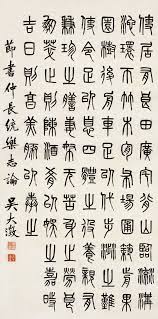 使居有良田廣宅背山臨流溝
池環匝竹木周布場圃築前果
園樹後舟車足以代步涉之難
使令足以息四體之役養親有
兼珍之膳妻孥無苦身之勞良
朋萃止則陳酒肴以娛之嘉時
吉日則烹羔豚以奉之
節書仲長統樂志論 吳大澂